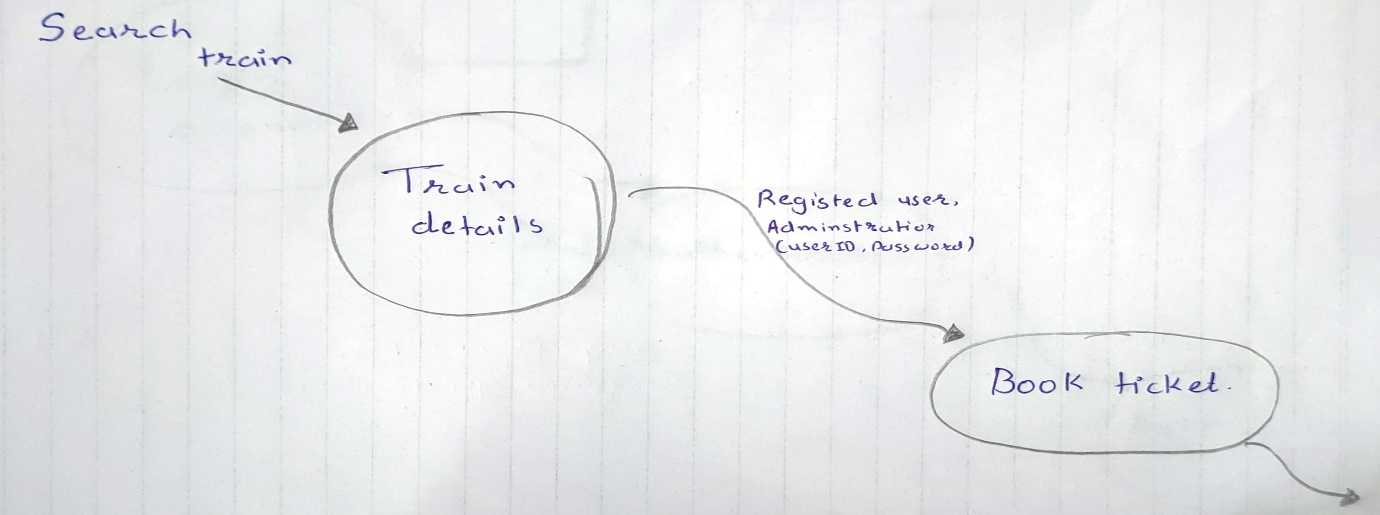 Search
train
Train
details
Registed user,
Adminstration
(user ID, Password)
Book ticket.